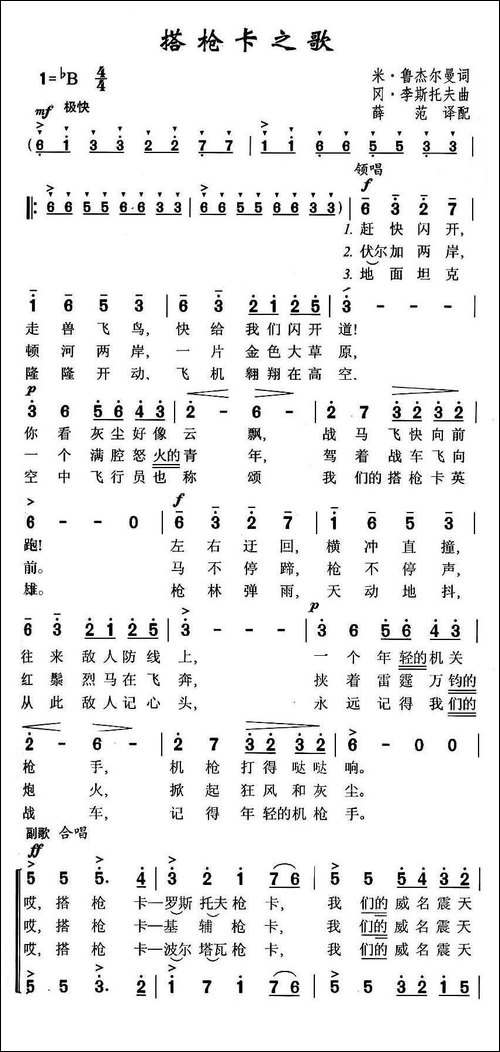 搭枪卡之歌
1=♭B 4/4
米·鲁杰尔曼词
冈·李斯托夫曲
薛 范 译配
mf 极快
(6 1 3 3 2 2 7 7 | 1 1 6 6 5 5 3 3 |
领唱
f
6 6 5 5 5·6 6 3 3 | 6 6 5 5 6 6 3 3) | 6 3 2 7 |
1. 赶快闪开,
2. 伏尔加两岸,
3. 地面坦克
1 6 5 3 | 6 3 2 1 2 5 | 3 - - - |
走兽飞鸟, 快给我们闪开道!
顿河两岸, 一片金色大草原,
隆隆开动、飞机翱翔在高空.
p
3 6 5 6 4 3 | 2 - 6 - | 2 7 3 2 3 2 |
你看灰尘好像云飘, 战马飞快向前
一个满腔怒火的青年, 驾着战车飞向
空中飞行员也称颂 我们的搭枪卡英
f
6 - - 0 | 6 3 2 7 | 1 6 5 3 |
跑! 左右迂回, 横冲直撞,
前。 马不停蹄, 枪不停声,
雄。 枪林弹雨, 天动地抖,
p
6 3 2 1 2 5 | 3 - - - | 3 6 5 6 4 3 |
往来敌人防线上, 一个年轻的机关
红鬃烈马在飞奔, 挟着雷霆万钧的
从此敌人记心头, 永远记得我们的
2 - 6 - | 2 7 3 2 3 2 | 6 - 0 0 |
枪手, 机枪打得哒哒响。
炮火, 掀起狂风和灰尘。
战车, 记得年轻的机枪手。
副歌 合唱
ff
5 5 5· 4 | 3 2 1 7 6 | 5 5 5 4 3 2 |
哎, 搭枪卡—罗斯托夫枪卡, 我们的威名震天
哎, 搭枪卡—基辅枪卡, 我们的威名震天
哎, 搭枪卡—波尔塔瓦枪卡, 我们的威名震天
5 5 3· 2 | 1 7 1 7 6 | 5 5 2 1 5 5 |